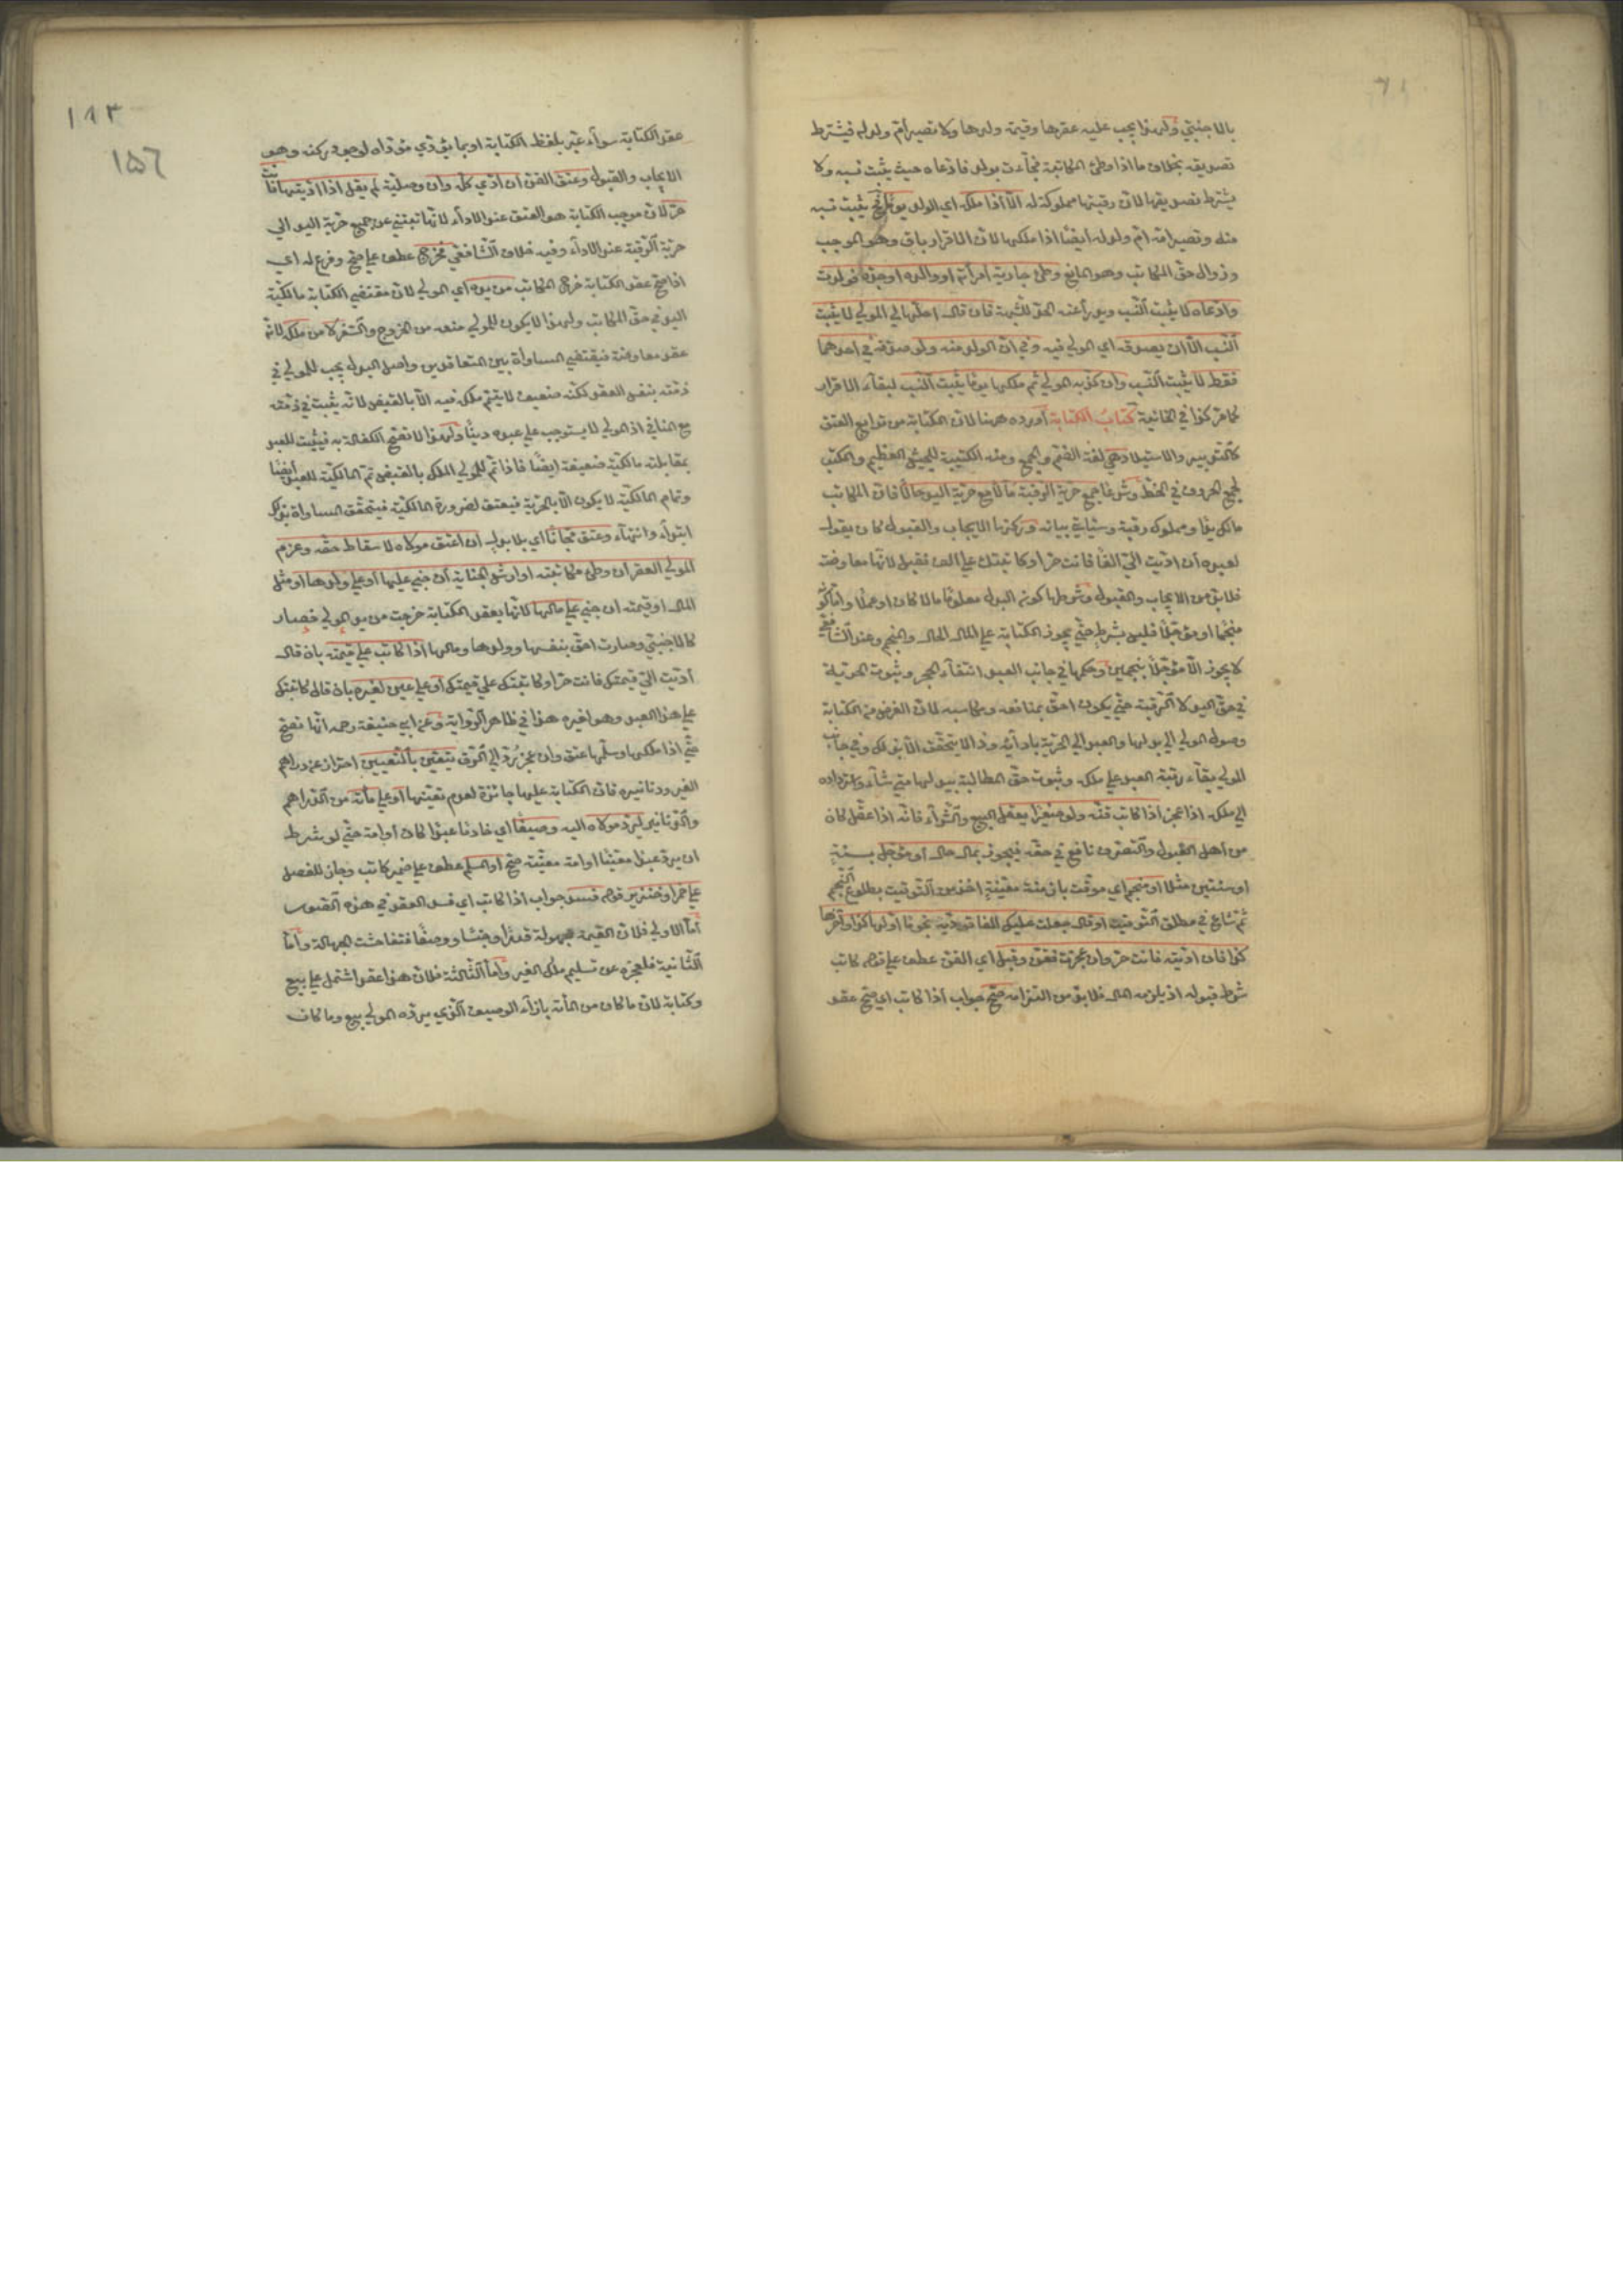 بالاجنبي ولهذا يجب عليه عقرها وقيمة ولدها ولا تصير أم ولد له فيشترط
تصديقه بخلاف ما اذا وطئ المكاتبة فجاءت بولد فادعاه حيث يثبت نسبه ولا
يشترط تصديقها لان رقبتها مملوكة له الا اذا ملكه اي الولد يوما يثبت نسبه
منه وتصير امه ام ولد له أيضا اذا ملكها لان الاقرار باق وهو الموجب
وزوال حق المكاتب وهو المانع وطئ جارية امرأته او والده او جده فولدت
وادعاه لا يثبت النسب ويدرأ عنه الحد للشبهة فان قال احلها لي المولى لا يثبت
النسب الا ان يصدقه اي المولى فيه وفي ان الولد منه ولو صدقه في احدهما
فقط لا يثبت النسب وان كذبه المولى ثم ملكها يوما يثبت النسب لبقاء الاقرار
كما مر كذا في الخانية كتاب الكتابة أورده ههنا لان الكتابة من توابع العتق
كالتدبير والاستيلاد هي لغة الضم والجمع ومنه الكتيبة للجيش العظيم والكتب
لجمع الحروف في الخط وشرعا جمع حرية الرقبة مآلا مع حرية اليد حالا فان المكاتب
مالك يدا ومملوك رقبة وسيأتي بيانه وركنها الايجاب والقبول كان يقول
لعبده ان اديت الي الفا فانت حر او كاتبتك على الف فقبل لانها معاوضة
فلا بد من الايجاب والقبول وشرطها كون البدل معلوما مالا كان او عملا واما كونه
منجما او مؤجلا فليس بشرط حتى يجوز الكتابة على المال الحال والمنجم وعند الشافعي
لا يجوز الا مؤجلا بنجمين وحكمها في جانب العبد انتفاء الحجر وثبوت الحرية
في حق اليد لا الرقبة حتى يكون احق بمنافعه ومكاسبه لان الغرض من الكتابة
وصول المولى الى بدلها والعبد الى الحرية بادائه وذا لا يتحقق الا بذلك وفي جانب
المولى بقاء رقبة العبد على ملكه وثبوت حق المطالبة ببدلها متى شاء واسترداده
الى ملكه اذا عجز اذا كاتب قنه ولو صغيرا يعقل البيع والشراء فانه اذا عقل كان
من أهل القبول والتصرف نافع في حقه فيجوز بمال حال او مؤجل بسنة
او سنتين مثلا او منجم اي موقت بازمنة معينة اخذ من التوقيت بطلوع النجم
ثم شاع في مطلق التوقيت او قال جعلت عليك الفا تؤديه نجوما اولها كذا وآخرها
كذا فان اديته فانت حر وان عجزت فقن وقبل اي القن عطف على قوله كاتب
شرط قبوله اذ يلزمه المال فلا بد من التزامه صح جواب اذا كاتب اي صح عقد
١٨٣
١٥٦
عقد الكتابة سواء عبر بلفظ الكتابة او بما يؤدي مؤداه لوجود ركنه وهو
الايجاب والقبول وعتق القن ان ادي كله وان وصلية لم يقل اذا اديتها فانت
حر لان موجب الكتابة هو العتق عند الاداء لانها تنبئ عن جميع حرية اليد الى
حرية الرقبة عند الاداء وفيه خلاف الشافعي فخرج عطف على صح وفرع له اي
اذا صح عقد الكتابة خرج المكاتب من يده اي المولى لان مقتضى الكتابة مالكية
اليد في حق المكاتب ولهذا لا يكون للمولى منعه من الخروج والسفر لا من ملكه لانه
عقد معاوضة فيقتضي المساواة بين المتعاقدين واصل البدل يجب للمولى في
ذمته بنفس العقد لكنه ضعيف لا يتم ملكه فيه الا بالقبض لانه يثبت في ذمته
مع المنافي اذ المولى لا يستوجب على عبده دينا ولهذا لا تصح الكفالة به فيثبت للعبد
بمقابلته مالكية ضعيفة ايضا فاذا تم للمولى الملك بالقبض تم المالكية للعبد أيضا
وتمام المالكية لا يكون الا بالحرية فيعتق لضرورة المالكية فيتحقق المساواة بذلك
ابتداء وانتهاء وعتق مجانا اي بلا بدل ان اعتق مولاه لاسقاط حقه وغرم
المولى العقر ان وطئ مكاتبته او ارش الجناية ان جنى عليها او على ولدها او مثل
المال او قيمته ان جنى على مالها لانها بعقد الكتابة خرجت من يد المولى فصار
كالاجنبي وصارت احق بنفسها وولدها ومالها اذا كاتب على قيمته بان قال
أديت الي قيمتك فانت حر او كاتبتك على قيمتك او على عين لغيره بان قال كاتبتك
على هذا العبد وهو لغيره هذا في ظاهر الرواية وعن ابي حنيفة رحمه انها تصح
حتى اذا ملكها وسلمها عتق وان عجز يرد الى الرق يتعين بالتعيين احتراز عن دراهم
الغير ودنانيره فان الكتابة عليها جائزة لعدم تعينها او على مأة من الدراهم
والدنانير ليرد مولاه اليه وصيفا اي خادما عبدا كان أو امة حتى لو شرط
ان يرد عبدا معينا او امة معينة صح او المسلم عطف على ضمير كاتب وجاز للفصل
على خمر او خنزير قوله فسد جواب اذا كاتب اي فسد العقد في هذه الصور
أما الاولى فلان القيمة مجهولة قدرا وجنسا ووصفا فتفاحشت الجهالة وأما
الثانية فلعجزه عن تسليم ملك الغير وأما الثالثة فلان هذا عقد اشتمل على بيع
وكتابة لان ما كان من المأة بازاء الوصيف الذي يرده المولى بيع وما كان